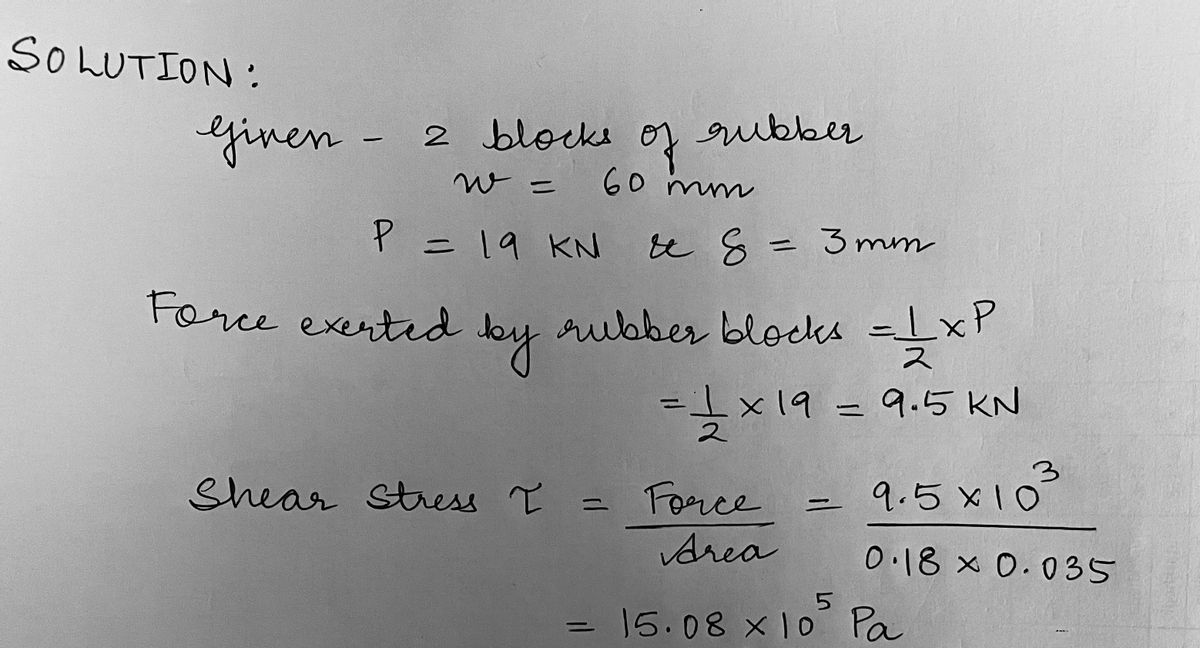 SOLUTION:
Given - 2 blocks of rubber
w = 60 mm
P = 19 KN & δ = 3 mm
Force exerted by rubber blocks = 1/2 x P
= 1/2 x 19 = 9.5 KN
Shear Stress τ = Force/Area = 9.5 x 10³/0.18 x 0.035
= 15.08 x 10⁵ Pa